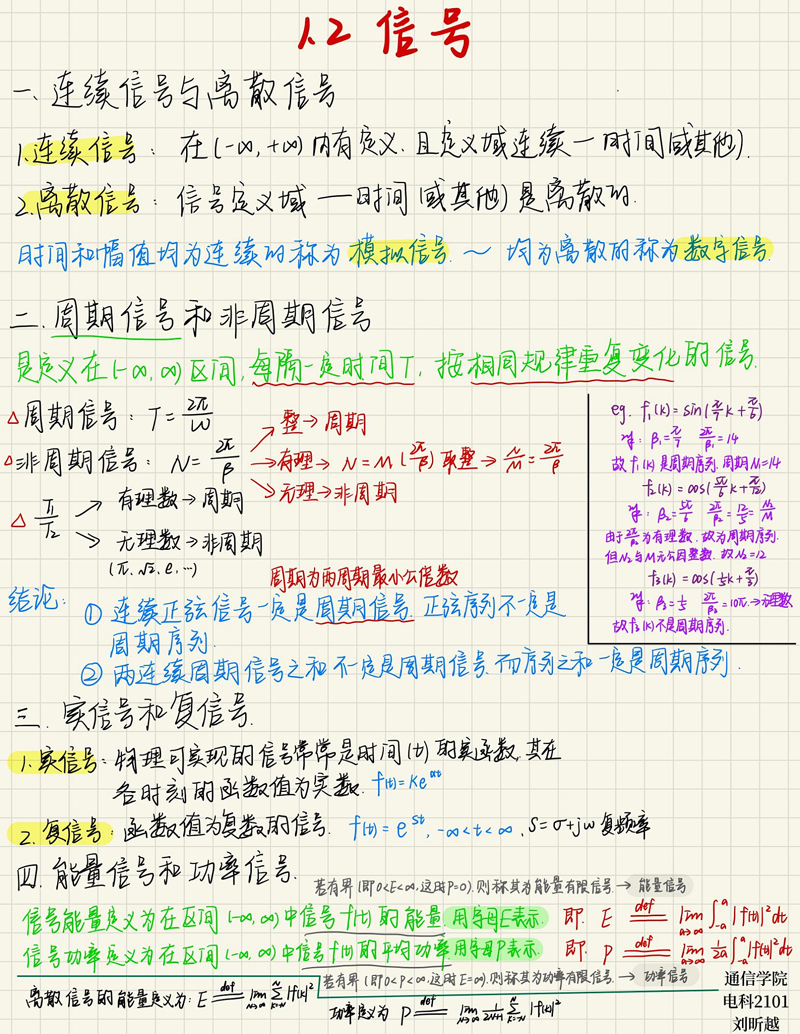 1.2 信号
一、连续信号与离散信号
1.连续信号：在(-∞,+∞)内有定义、且定义域连续一时间(或其他).
2.离散信号：信号定义域 一时间(或其他)是离散的.
时间和幅值均为连续的称为模拟信号. ～ 均为离散的称为数字信号.
二.周期信号和非周期信号
是定义在(-∞,∞)区间,每隔一定时间T,按相同规律重复变化的信号.
△周期信号：T=2π/ω
整→周期
△非周期信号：N=2π/β
→有理→ N=M(2π/β)取整→ N/M=2π/β
无理→非周期
△ T1/T2 → 有理数→周期
→ 无理数→非周期
(π.√2.e.…)
周期为两周期最小公倍数
eg. f₁(k)=sin(π/7 k+π/6)
β₁=π/7 2π/β₁=14
故f₁(k)是周期序列.周期N=14
f₂(k)=cos(5π/6 k+π/12)
β₂=5π/6 2π/β₂=12/5=N₂/M
由于2π/β₂为有理数,故为周期序列.
但N₂与M无公因整数.故N₂=12
f₃(k)=cos(1/5 k+π/3)
β₃=1/5 2π/β₃=10π.→无理数
故f₃(k)不是周期序列.
结论：① 连续正弦信号一定是周期信号.正弦序列不一定是
周期序列.
② 两连续周期信号之和不一定是周期信号.而序列之和一定是周期序列.
三.实信号和复信号.
1.实信号：物理可实现的信号常常是时间(t)的实函数,其在
各时刻的函数值为实数. f(t)=Ke^αt
2.复信号：函数值为复数的信号. f(t)=e^st,-∞<t<∞,S=σ+jω复频率
四.能量信号和功率信号.
若有界(即0<E<∞,这时P=0).则称其为能量有限信号.→能量信号
信号能量定义为在区间(-∞,∞)中信号f(t)的能量.用字母E表示. 即. E def= lim a→∞ ∫₋ₐᵃ |f(t)|²dt
信号功率定义为在区间(-∞,∞)中信号f(t)的平均功率.用字母P表示 即. P def= lim a→∞ 1/2a ∫₋ₐᵃ |f(t)|²dt
若有界(即0<P<∞,这时E=∞).则称其为功率有限信号.→功率信号
离散信号的能量定义为：E def= lim N→∞ Σ k=-N N |f(k)|²
功率定义为 P def= lim N→∞ 1/2N+1 Σ k=-N N |f(k)|²
通信学院
电科2101
刘昕越